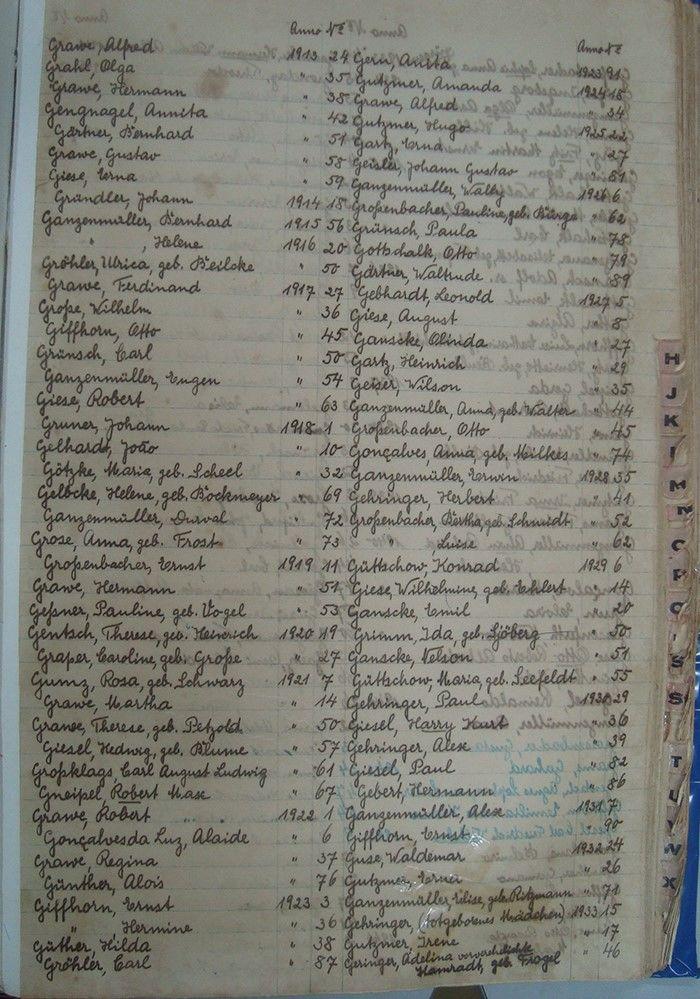 Anno № Anno №
Grawe, Alfred 1913 24
Grahl, Olga " 35
Grawe, Hermann " 38
Gengnagel, Annita " 42
Gärtner, Bernhard " 51
Grawe, Gustav " 58
Giese, Erna " 59
Gründler, Johann 1914 18
Ganzenmüller, Bernhard 1915 56
" , Helene 1916 20
Gröhler, Ulrica, geb. Beilcke " 50
Grawe, Ferdinand 1917 27
Große, Wilhelm " 36
Giffhorn, Otto " 45
Grünsch, Carl " 50
Ganzenmüller, Eugen " 54
Giese, Robert " 63
Gruner, Johann 1918 1
Gelhardt, João " 10
Götzke, Maria, geb. Scheel " 32
Gelbcke, Helene, geb. Bockmeyer " 69
Ganzenmüller, Durval " 72
Grose, Anna, geb. Frost " 73
Großenbacher, Ernst 1919 11
Grawe, Hermann " 51
Geßner, Pauline, geb. Vogel " 53
Gentsch, Therese, geb. Heinrich 1920 19
Graper, Caroline, geb. Große " 27
Gumz, Rosa, geb. Schwarz 1921 7
Grawe, Martha " 14
Grawe, Therese, geb. Petzold " 50
Giesel, Hedwig, geb. Blume " 57
Großklags, Carl August Ludwig " 61
Gneipel, Robert Max " 67
Grawe, Robert 1922 1
Gonçalves da Luz, Alaide " 6
Grawe, Regina " 37
Günther, Alois " 76
Giffhorn, Ernst 1923 3
" Hermine " 36
Güther, Hilda " 38
Gröhler, Carl " 87
Gern, Anita 1923 91
Gutzmer, Amanda 1924 18
Grawe, Alfred " 34
Gutzmer, Hugo 1925 22
Gartz, Erna " 27
Geisler, Johann Gustav " 81
Ganzenmüller, Wally 1926 6
Großenbacher, Pauline, geb. Bürge " 62
Grünsch, Paula " 78
Gottschalk, Otto " 79
Gärtner, Waltrude " 89
Gebhardt, Leonold 1927 5
Giese, August " 8
Ganscke, Olinda " 27
Gartz, Heinrich " 29
Geiser, Wilson " 35
Ganzenmüller, Anna, geb. Walter " 44
Großenbacher, Otto " 45
Gonçalves, Anna, geb. Milkes " 74
Ganzenmüller, Erwin 1928 35
Gehringer, Herbert " 41
Großenbacher, Bertha, geb. Schmidt " 52
" Luise " 62
Güttschow, Konrad 1929 6
Giese, Wilhelmine, geb. Ehlert " 14
Ganscke, Emil " 20
Grimm, Ida, geb. Sjöberg " 50
Ganscke, Nelson " 51
Güttschow, Maria, geb. Seefeldt " 55
Gehringer, Paul 1930 29
Giesel, Harry Kurt " 36
Gehringer, Alex " 39
Giesel, Paul " 82
Gebert, Hermann " 86
Ganzenmüller, Alex 1931 7
Giffhorn, Ernst " 90
Guse, Waldemar 1932 24
Gutzmer, Erna " 26
Ganzenmüller, Elise, geb. Ritzmann " 71
Gehringer, (totgebornes Mädchen) 1933 15
Gutzmer, Irene " 17
Geringer, Adelina verwehelichte " 46
Hamradt, geb. Frogel
H
J
K
L
M
N
O
P
Q
S
S
T
U
V
W
X